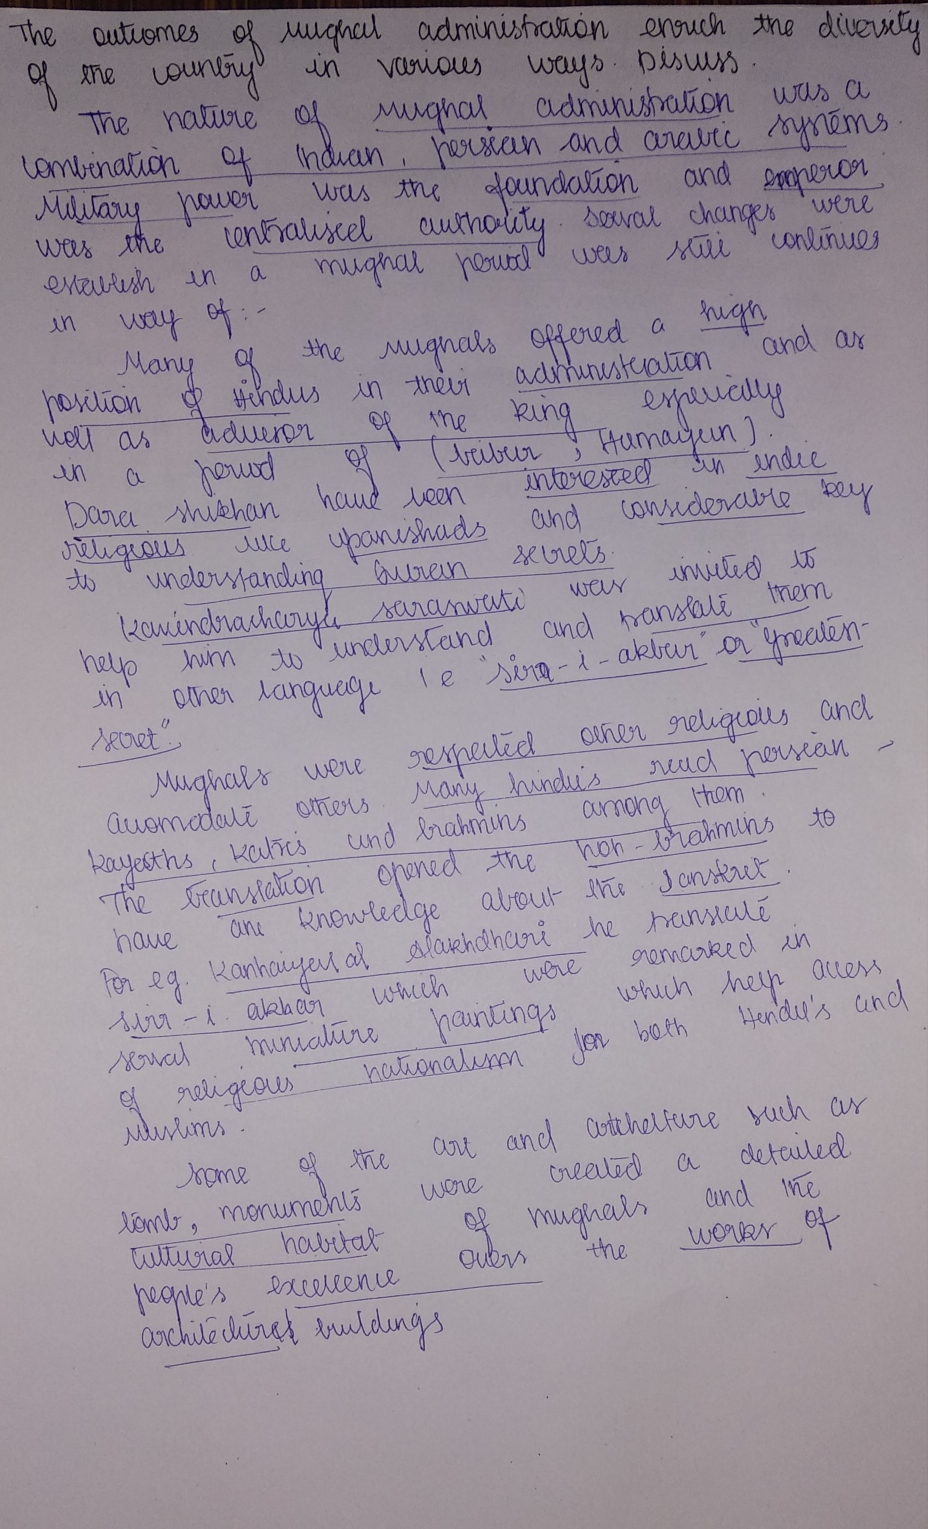 The outcomes of Mughal administration enrich the diversity
of the country in various ways. Discuss.
The nature of Mughal administration was a
combination of Indian, persian and arabic systems.
Military power was the foundation and emperor
was the centralised authority. Several changes were
establish in a mughal period was still continues
in way of :-
Many of the Mughals offered a high
position of Hindus in their administration and as
well as advisor of the king especially
in a period of (babur, Humayun).
Dara shikhan have been interested in indic
religious like upanishads and considerable key
to understanding Quran secrets.
Kavindracharya saraswati was invited to
help him to understand and translate them
in other language i e "sirr-i-akbar" or "greatest-
secret".
Mughals were respected other religious and
accomodate others. Many hindu's read persian -
Kayasths, Katris and brahmins among them.
The translation opened the non-brahmins to
have an knowledge about the Sanskrit.
For eg. Kanhaiyalal Alakhdhari he translate
sirr-i-akbar which were remarked in
serval miniature paintings which help access
of religious nationalism for both Hindu's and
Muslims.
Some of the art and such as
tomb, monuments were created a detailed
cultural habitat of mughals and the
people's excellence overs the works of
architectural buildings